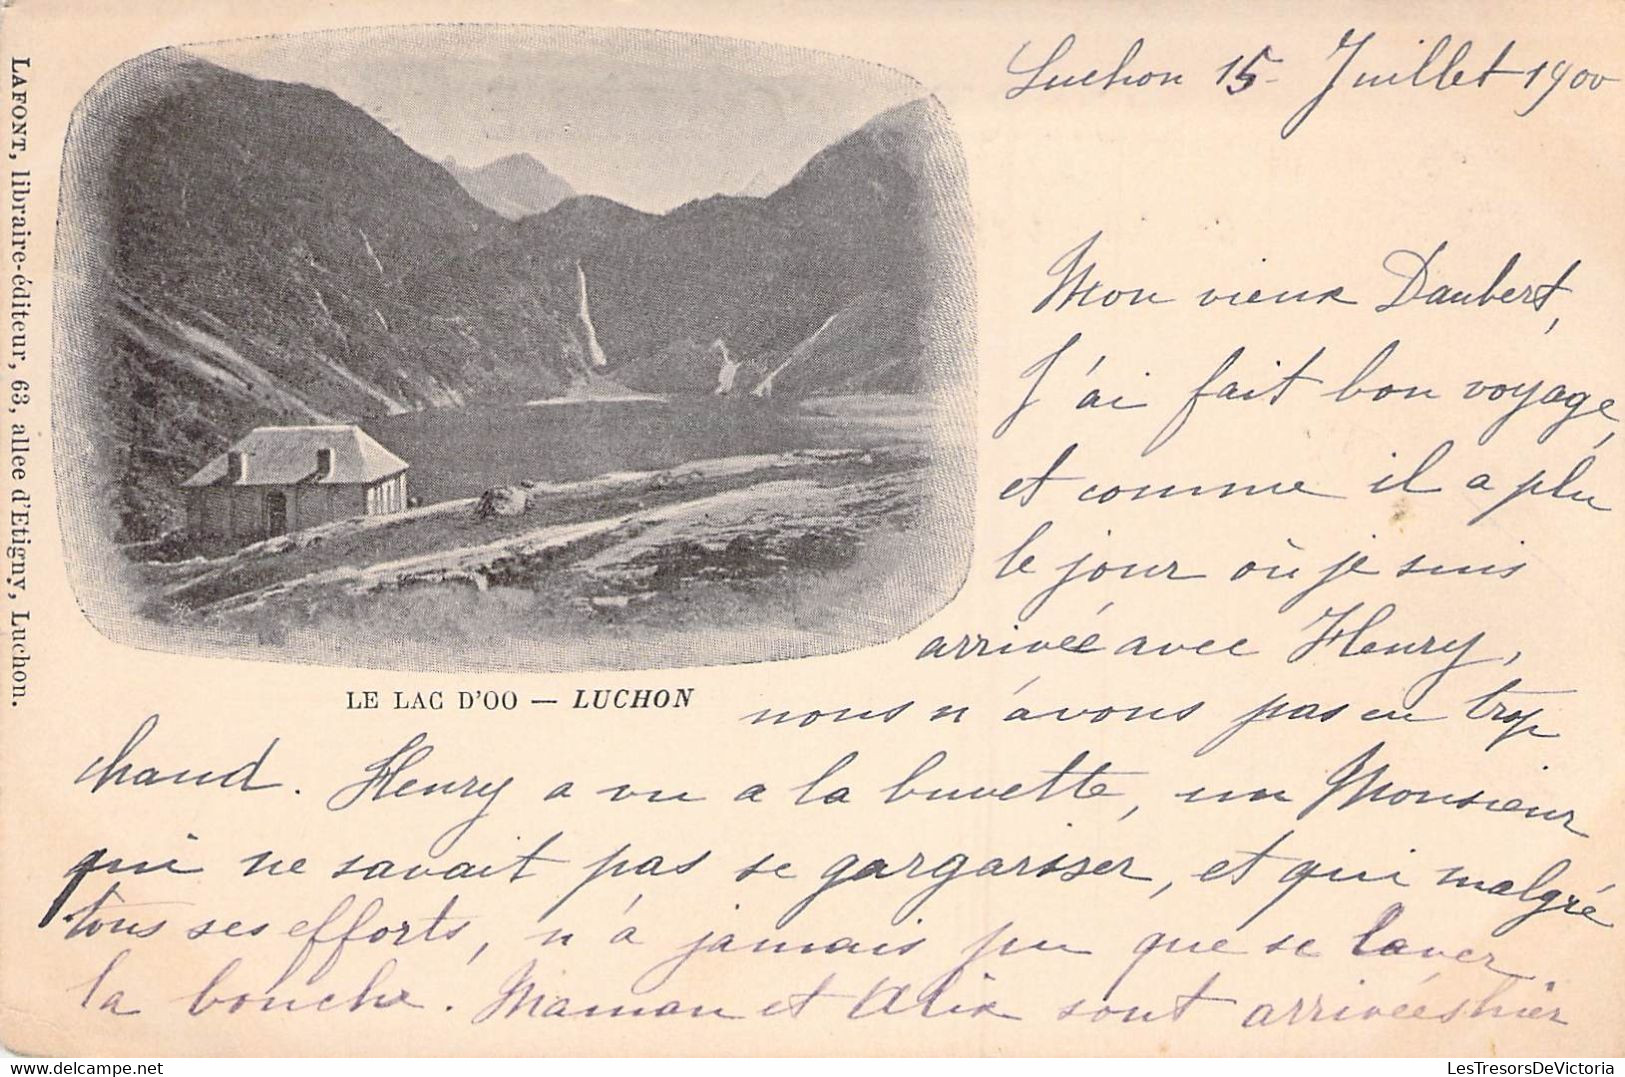 Luchon 15 Juillet 1900
Mon vieux Daubert,
J'ai fait bon voyage,
et comme il a plu
le jour où je suis
arrivée avec Henry,
nous n'avons pas eu trop
chaud. Henry a vu a la buvette, un Monsieur
qui ne savait pas se gargariser, et qui malgré
tous ses efforts, n'a jamais pu que se laver
la bouche. Maman et Alix sont arrivées hier
LE LAC D'OO — LUCHON
LAFONT, libraire-éditeur, 63, allee d'Etigny, Luchon.
LesTresorsDeVictoria